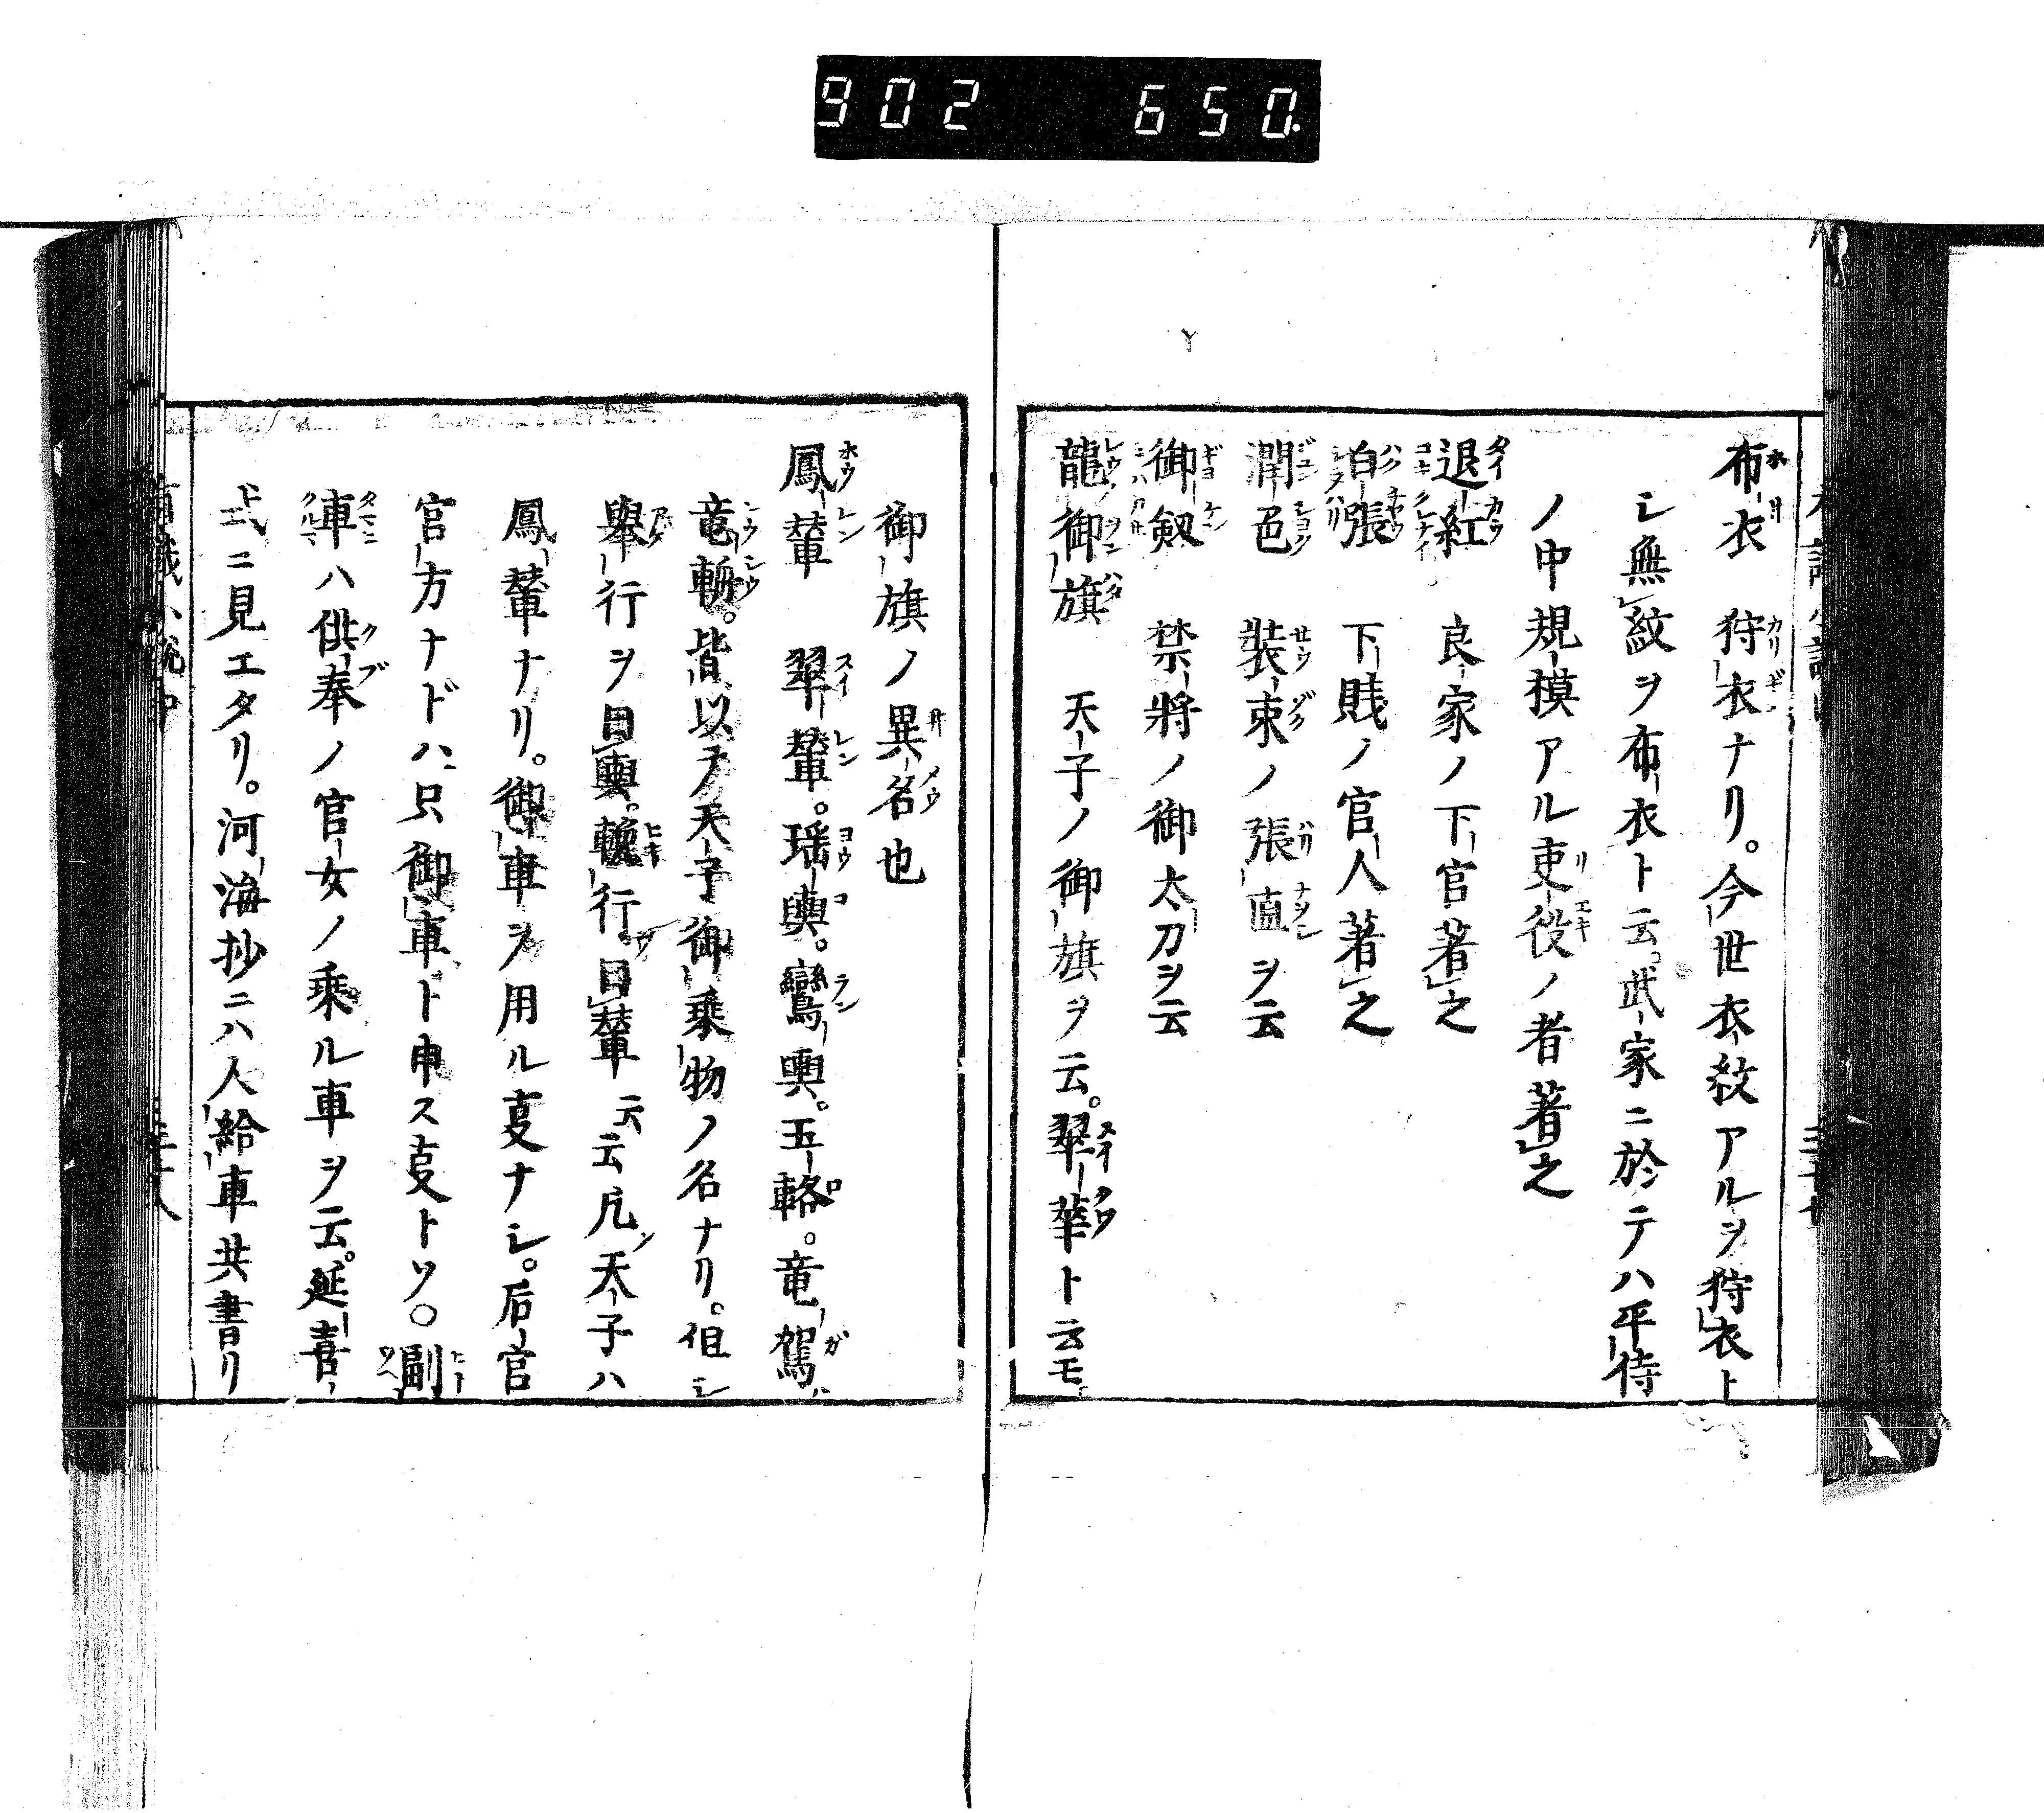 902 650
布衣 狩衣ナリ。今世衣紋アルヲ狩衣ト
シ無紋ヲ布衣ト云。武家ニ於テハ平侍
ノ中規模アル吏役ノ者著之
退紅 良家ノ下官著之
白張 下賎ノ官人著之
潤色 装束ノ張直ヲ云
御剱 禁将ノ御太刀ヲ云
龍御旗 天子ノ御旗ヲ云。翠華ト云モ
御旗ノ異名也
鳳輦 翠輦。瑶輿。鸞輿。五輅。竜駕
竜輈。皆以テ天子御乗物ノ名ナリ。但シ
舉行ヲ曰輿。輓行ヲ曰輦云云凡天子ハ
鳳輦ナリ。御車ヲ用ル叓ナシ。后宮
官方ナドハ只御車ト申ス叓トソ。〇副
車ハ供奉ノ官女ノ乗ル車ヲ云。延喜
式ニ見エタリ。河海抄ニハ人給車共書リ